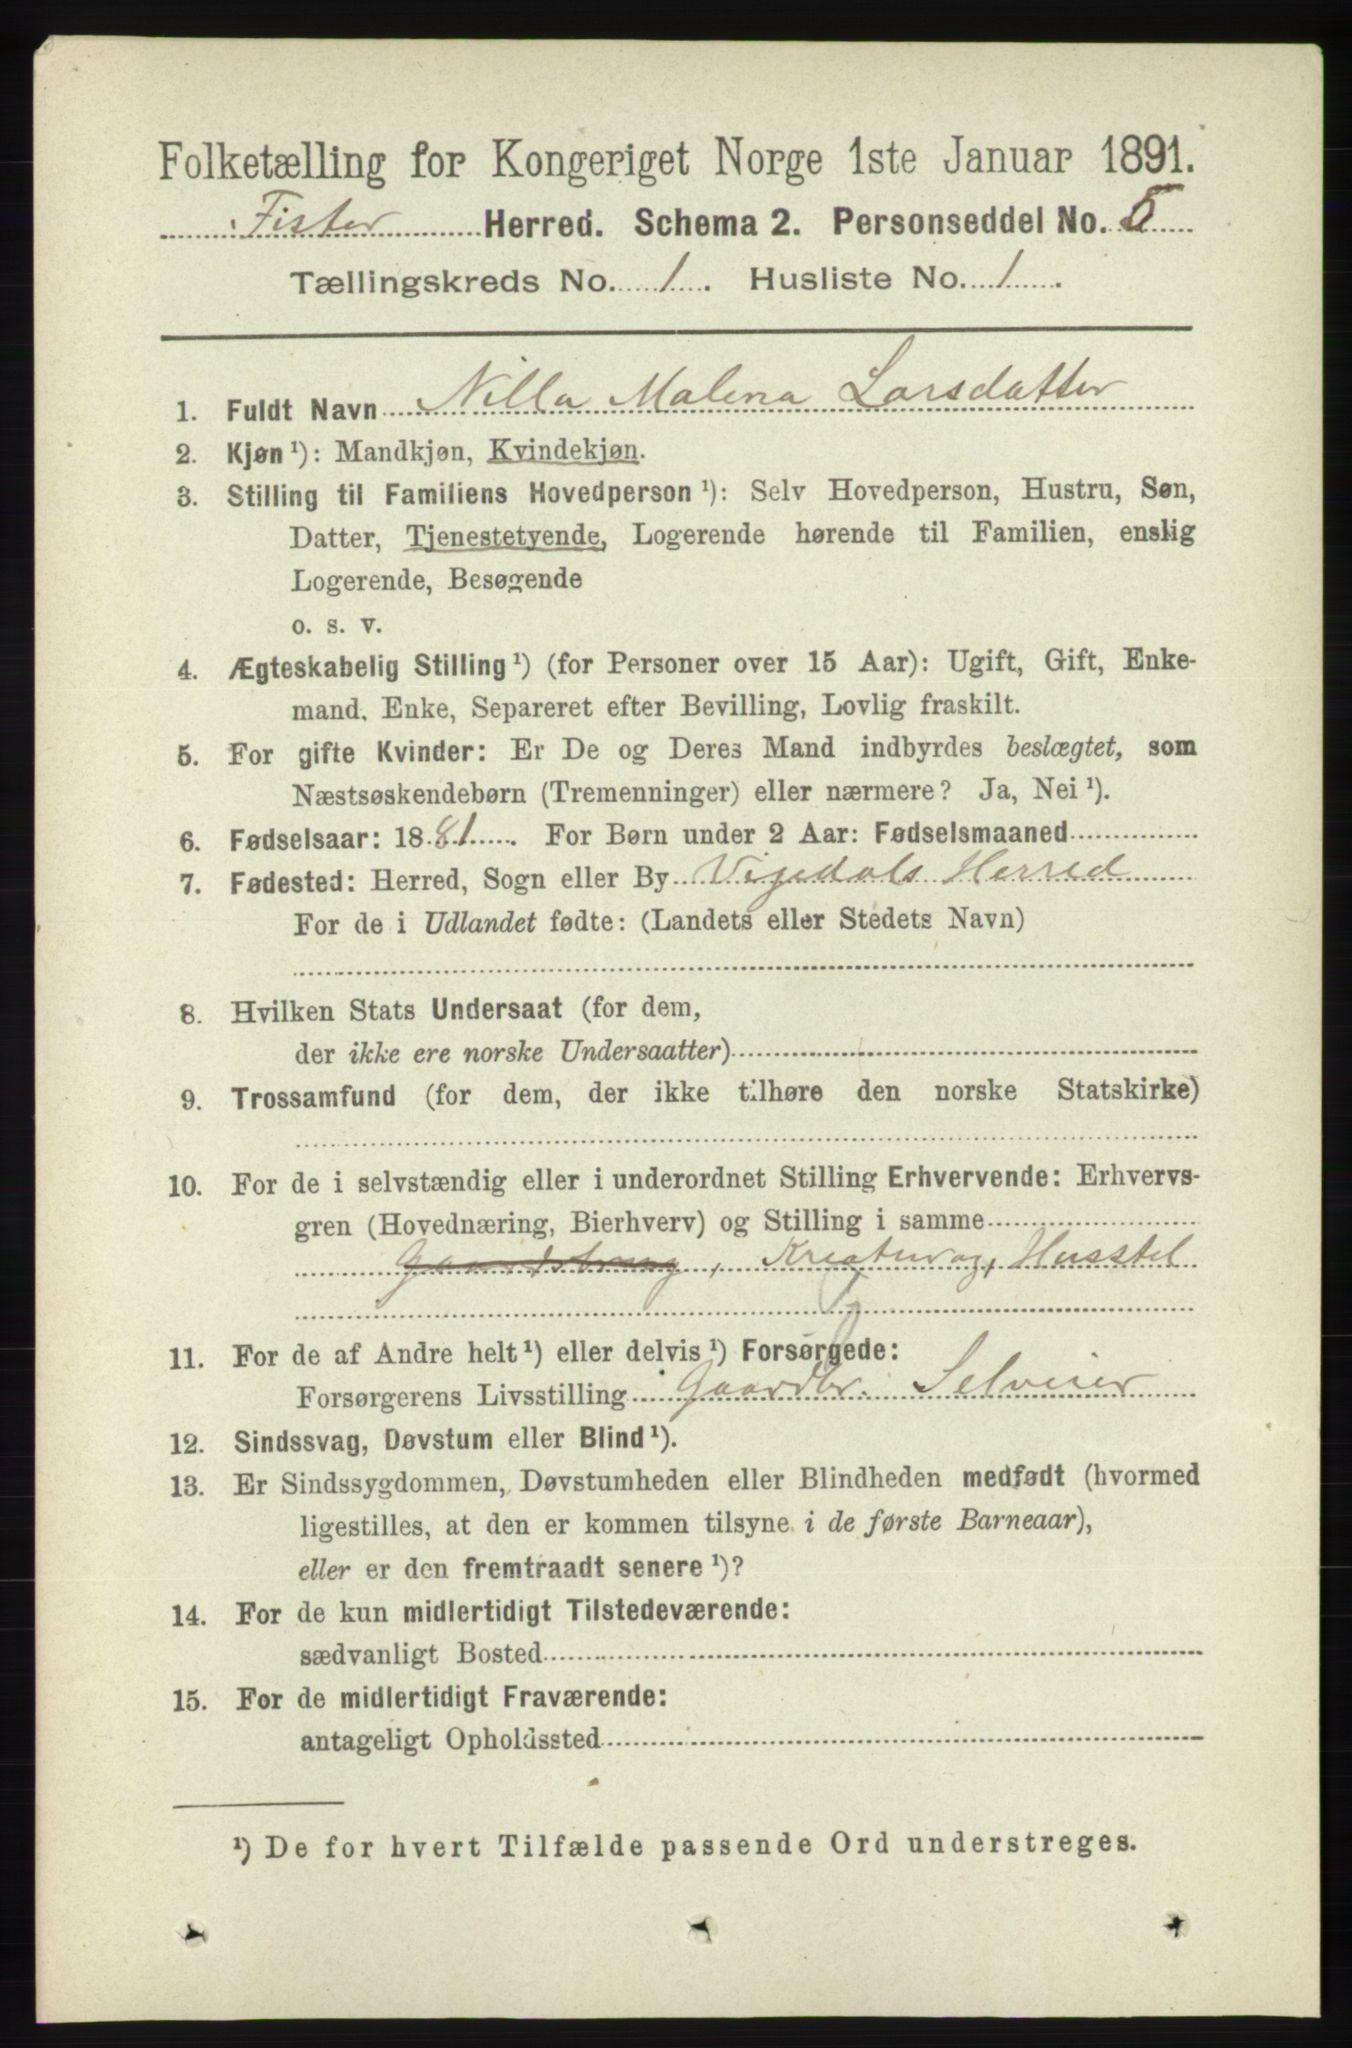 Folketælling for Kongeriget Norge 1ste Januar 1891.
Fister Herred. Schema 2. Personseddel No. 5
Tællingskreds No. 1. Husliste No. 1.
1. Fuldt Navn Nilla Malena Larsdatter
2. Kjøn ¹): Mandkjøn, Kvindekjøn.
3. Stilling til Familiens Hovedperson ¹): Selv Hovedperson, Hustru, Søn,
Datter, Tjenestetyende, Logerende hørende til Familien, enslig
Logerende, Besøgende
o. s. v.
4. Ægteskabelig Stilling ¹) (for Personer over 15 Aar): Ugift, Gift, Enke-
mand, Enke, Separeret efter Bevilling, Lovlig fraskilt.
5. For gifte Kvinder: Er De og Deres Mand indbyrdes beslægtet, som
Næstsøskendebørn (Tremenninger) eller nærmere? Ja, Nei ¹).
6. Fødselsaar: 1881. For Børn under 2 Aar: Fødselsmaaned
7. Fødested: Herred, Sogn eller By Vigedals Herred
For de i Udlandet fødte: (Landets eller Stedets Navn)
8. Hvilken Stats Undersaat (for dem,
der ikke ere norske Undersaatter)
9. Trossamfund (for dem, der ikke tilhøre den norske Statskirke)
10. For de i selvstændig eller i underordnet Stilling Erhvervende: Erhvervs-
gren (Hovednæring, Bierhverv) og Stilling i samme
Gaardsbrug, Kreatur og Husstel
11. For de af Andre helt ¹) eller delvis ¹) Forsørgede:
Forsørgerens Livsstilling Gaardbr. Selveier
12. Sindssvag, Døvstum eller Blind ¹).
13. Er Sindssygdommen, Døvstumheden eller Blindheden medfødt (hvormed
ligestilles, at den er kommen tilsyne i de første Barneaar),
eller er den fremtraadt senere ¹)?
14. For de kun midlertidigt Tilstedeværende:
sædvanligt Bosted
15. For de midlertidigt Fraværende:
antageligt Opholdssted
¹) De for hvert Tilfælde passende Ord understreges.